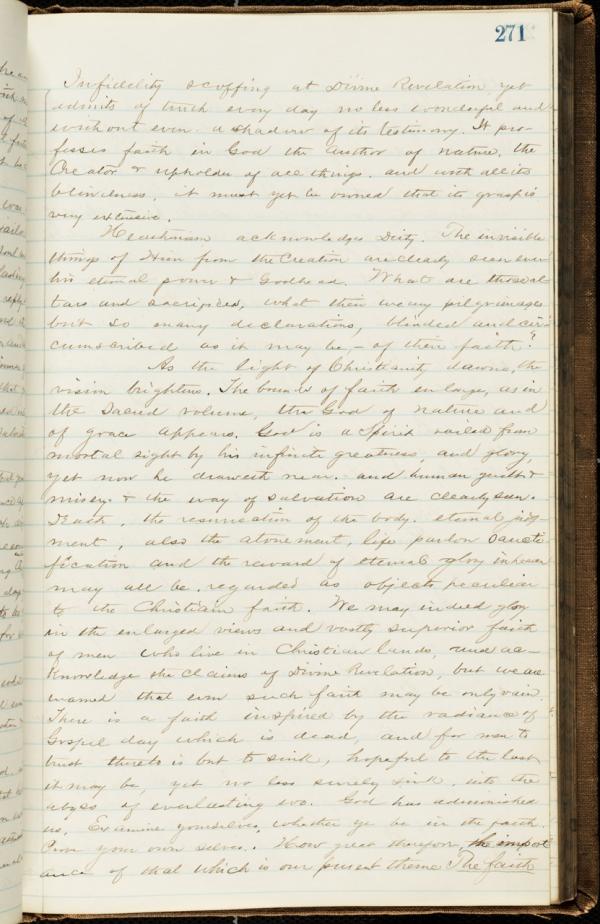 271
Infidelity scoffing at Divine Revelation yet
admits of truth every day no less wonderful and
without even a shadow of its testimony. It pro-
fesses faith in God the author of nature, the
Creator & upholder of all things. and with all its
blindness, it must yet be owned that its grasp is
very extensive.
Heathenism acknowledges Deity. The invisible
things of Him from the Creation are clearly seen even
his eternal power & Godhead. What are those al-
tars and sacrifices, what their weary pilgrimages
but so many declarations, blinded and cir-
cumscribed as it may be - of their faith?
As the light of Christianity dawns, the
vision brightens. The bounds of faith enlarge, as in
the Sacred volume, the God of nature and
of grace appears. God is a Spirit vailed from
mortal sight by his infinite greatness, and glory
yet now he draweth near. and human guilt &
misery & the way of salvation are clearly seen.
Death, the resurrection of the body. eternal judg-
ment, also the atonement, life pardon sancti-
fication and the reward of eternal glory in heaven
may all be regarded as objects peculiar
to the Christian faith. We may indeed glory
in the enlarged views and vastly superior faith
of men who live in Christian lands, and ac-
knowledge the claims of Divine Revelation, but we are
warned that even such faith may be only vain.
There is a faith inspired by the radiance of
Gospel day which is dead, and for men to
trust thereto is but to sink, hopeful to the last
it may be, yet no less surely sink, into the
abyss of everlasting wo. God has admonished
us, Examine yourselves, whether ye be in the faith.
Prove your own selves. How great therefore, the import
ance of that which is our present theme The faith